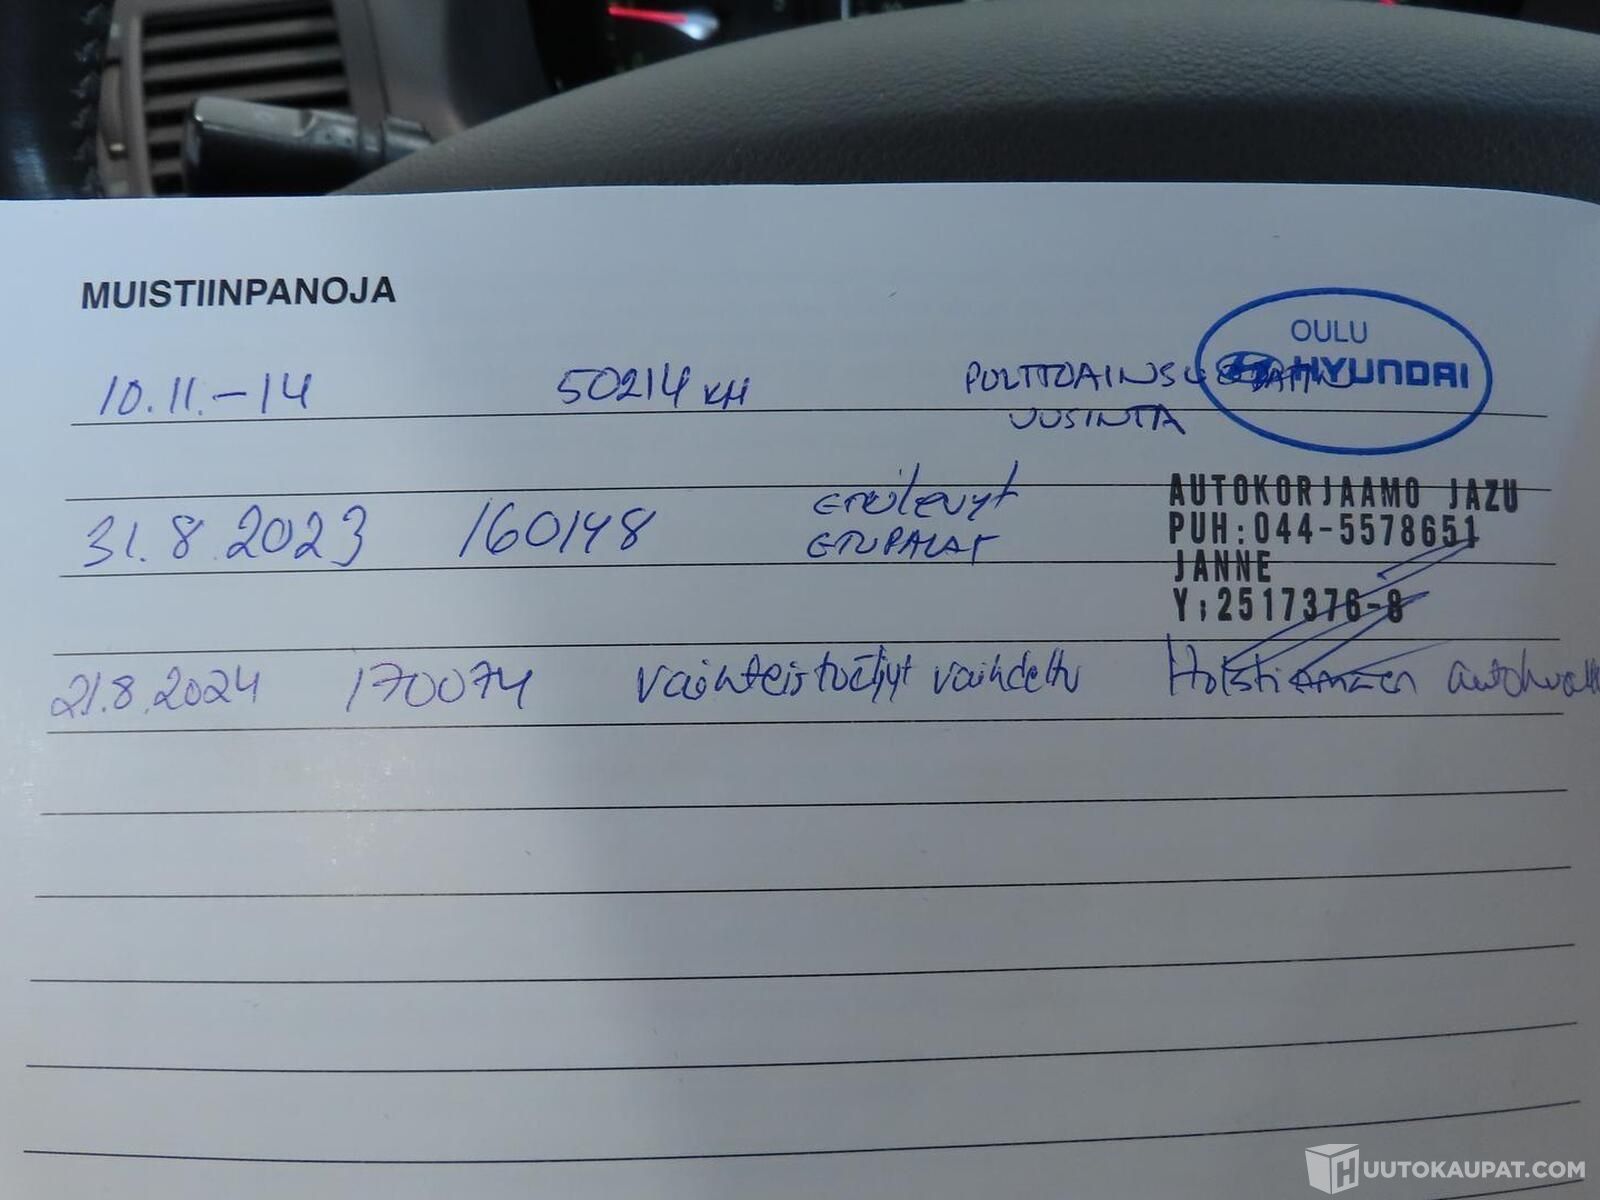 MUISTIINPANOJA
OULU
HYUNDAI
10.11.-14 50214 KM POLTTOAINSUODATTIMEN
UUSINTA
31.8.2023 160148 etulevyt
ETUPALAT
AUTOKORJAAMO JAZU
PUH:044-5578651
JANNE
Y:2517376-8
21.8.2024 170074 vaihteistoöljyt vaihdettu
HUUTOKAUPAT.COM